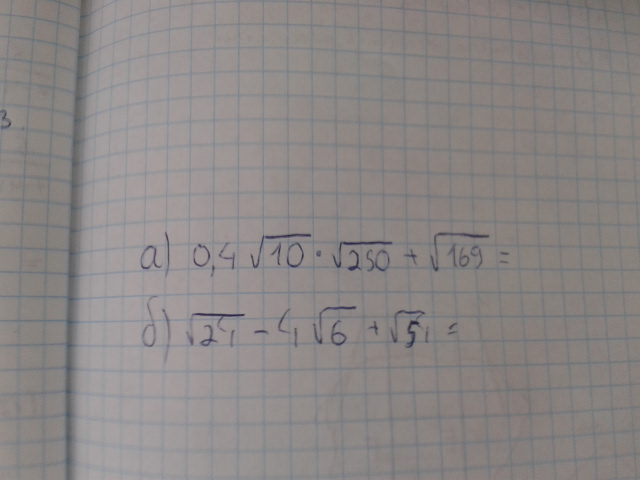 3
а) 0,4 √10 · √250 + √169 =
б) √24 - 4 √6 + √54 =